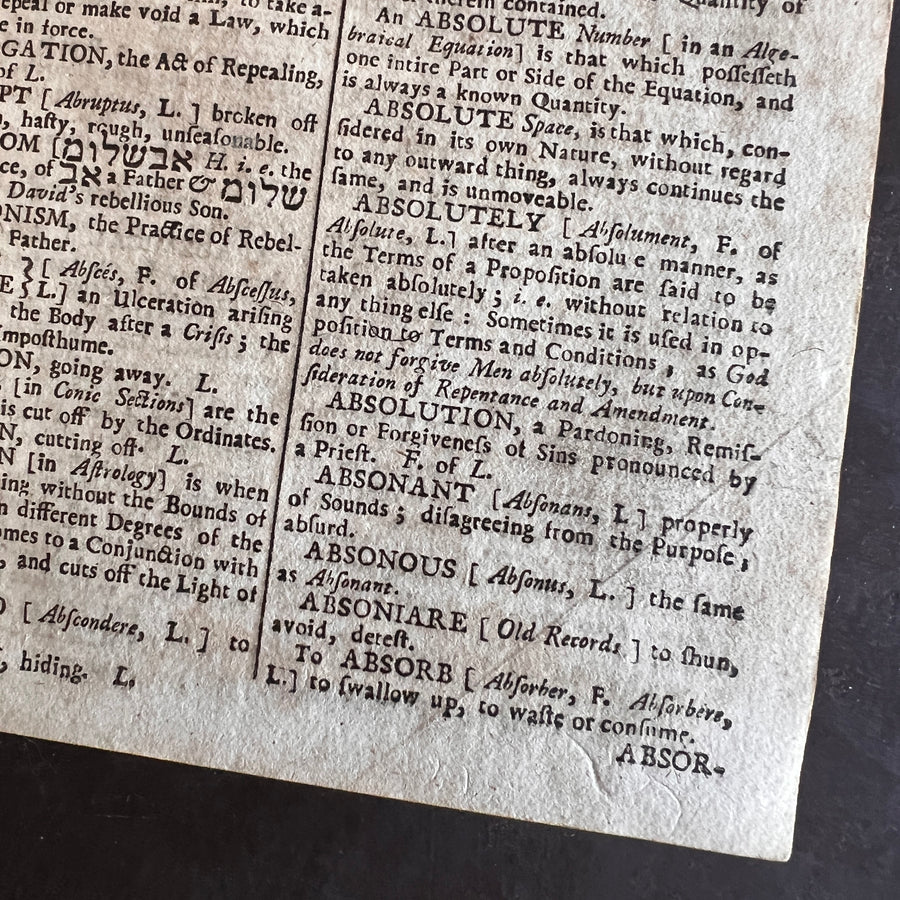 epeal or make void a Law, which
e in force.
GATION, the Act of Repealing,
of L.
PT [ Abruptus, L. ] broken off
, hasty, rough, unseasonable.
OM [אבשלומ H. i. e. the
ce, of אב a Father & שלומ
David's rebellious Son.
NISM, the Practice of Rebel-
Father.
} [ Abscés, F. of Abscessus,
E } L.] an Ulceration arising
the Body after a Crisis ; the
mposthume.
ON, going away. L.
[in Conic Sections] are the
is cut off by the Ordinates.
N, cutting off. L.
N [in Astrology] is when
ing without the Bounds of
n different Degrees of the
omes to a Conjunction with
, and cuts off the Light of
[ Abscondere, L. ] to
, hiding. L.
therein contained.
An ABSOLUTE Number [ in an Alge-
braical Equation] is that which possesseth
one intire Part or Side of the Equation, and
is always a known Quantity.
ABSOLUTE Space, is that which, con-
sidered in its own Nature, without regard
to any outward thing, always continues the
same, and is unmoveable.
ABSOLUTELY [ Absolument, F. of
Absolute, L.] after an absolu e manner, as
the Terms of a Proposition are said to be
taken absolutely ; i. e. without relation to
any thing else : Sometimes it is used in op-
position to Terms and Conditions, as God
does not forgive Men absolutely, but upon Con-
sideration of Repentance and Amendment.
ABSOLUTION, a Pardoning, Remis-
sion or Forgiveness of Sins pronounced by
a Priest. F. of L.
ABSONANT [ Absonans, L ] properly
of Sounds ; disagreeing from the Purpose,
absurd.
ABSONOUS [ Absonus, L. ] the same
as Absonant.
ABSONIARE [ Old Records ] to shun,
avoid, detest.
To ABSORB [ Absorber, F. Absorbere,
L.] to swallow up, to waste or consume.
ABSOR-